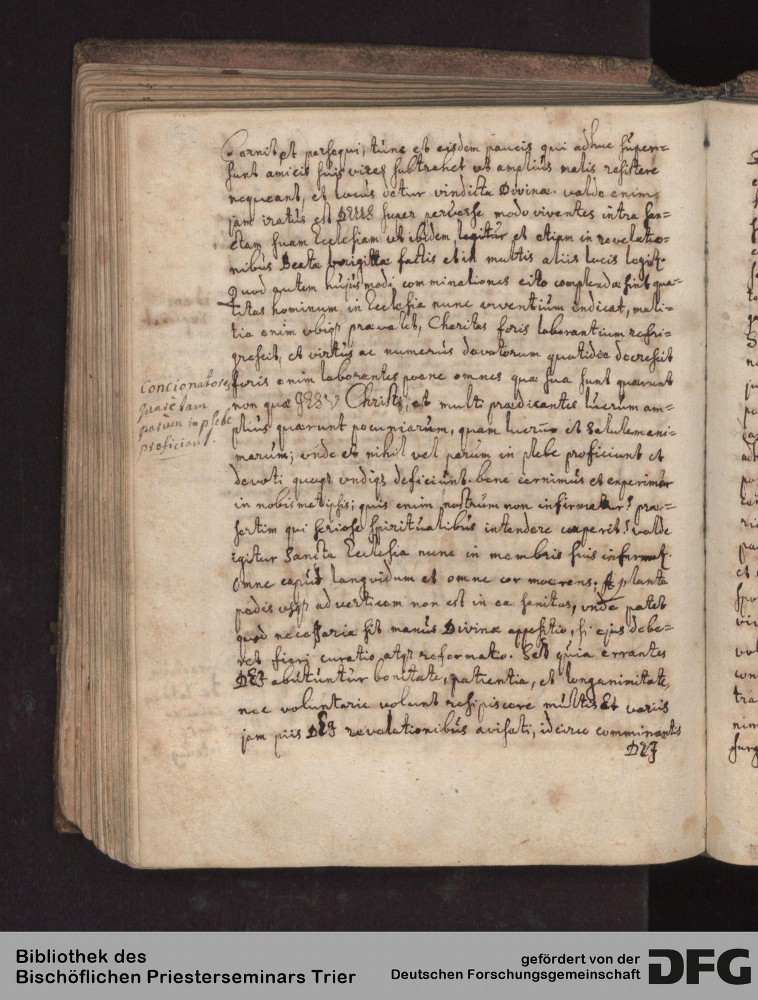 cornit et persequi, tunc et eisdem paucis qui adhuc super=
sunt amicis suis vires subtrahet ut amplius malis resistere
nequeant, et locus detur vindictæ Divinæ. valde enim
jam iratus est DEUS super perverse modo viventes intra san=
ctam suam Ecclesiam ut ibidem legitur et etiam in revelatio=
nibus Beatæ brigittæ factis et in multis aliis locis legit.
Quod autem hujusmodi comminationes cito complendæ sint qua=
litas hominum in Ecclesia nunc viventium indicat, mali=
tia enim ubiq prævalet, Charitas foris laborantium refri=
gescit, et virtus ac numerus devotorum quotidie decrescit
foris enim laborantes pœne omnes quæ sua sunt quærunt
non quæ JESV Christi, et multi prædicantes lucrum am=
plius quærunt pecuniarum, quam lucrum et salutem ani=
marum; unde et nihil vel parum in plebe proficiunt et
devoti quoq undiq deficiunt. bene cernimus et experimur
in nobismetipsis; quis enim nostrum non infirmetur? præ=
sertim qui seriose spiritualibus intendere cæperit? valde
igitur Sancta Ecclesia nunc in membris suis infirmat.
Omne caput languidum et omne cor moerens. A planta
pedis usq ad verticem non est in ea sanitas, unde patet
quod necessaria sit manus Divinæ appositio, si ejus debe=
ret fieri curatio atq reformatio. Sed quia errantes
DEJ abutuntur bonitate, patientia, et longanimitate
nec voluntarie volunt resipiscere multis Et variis
jam piis DEJ revelationibus avisati, idcirco comminantis
DEJ
Concionatores
quare tam
parum in plebe
proficiant.
Bibliothek des
Bischöflichen Priesterseminars Trier
gefördert von der
Deutschen Forschungsgemeinschaft
DFG